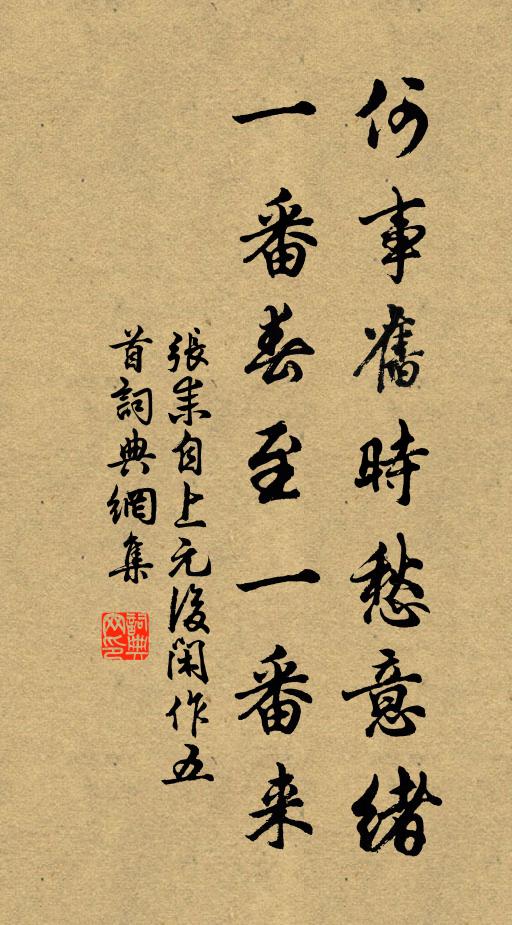 何事舊時愁意緒
一番春至一番来
張耒自上元後閑作五
首詞典網集
詞典网印